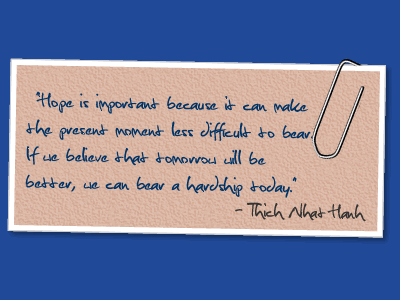 "Hope is important because it can make
the present moment less difficult to bear.
If we believe that tomorrow will be
better, we can bear a hardship today."
- Thich Nhat Hanh